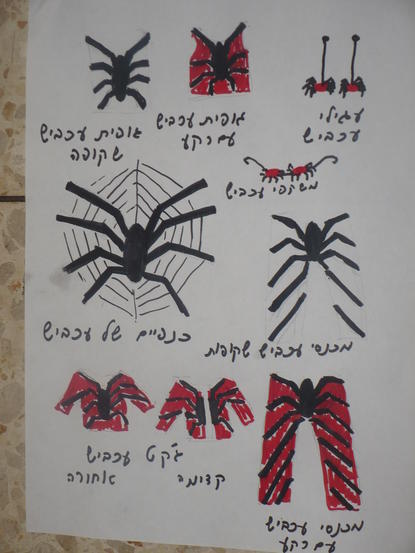 גופית עכביש
שקופה
גופית עכביש
עם רקע
עגילי
עכביש
משקפי עכביש
כנפיים של עכביש
מכנסי עכביש שקופות
ג'קט עכביש
אחורה
קדימה
מכנסי עכביש
עם רקע